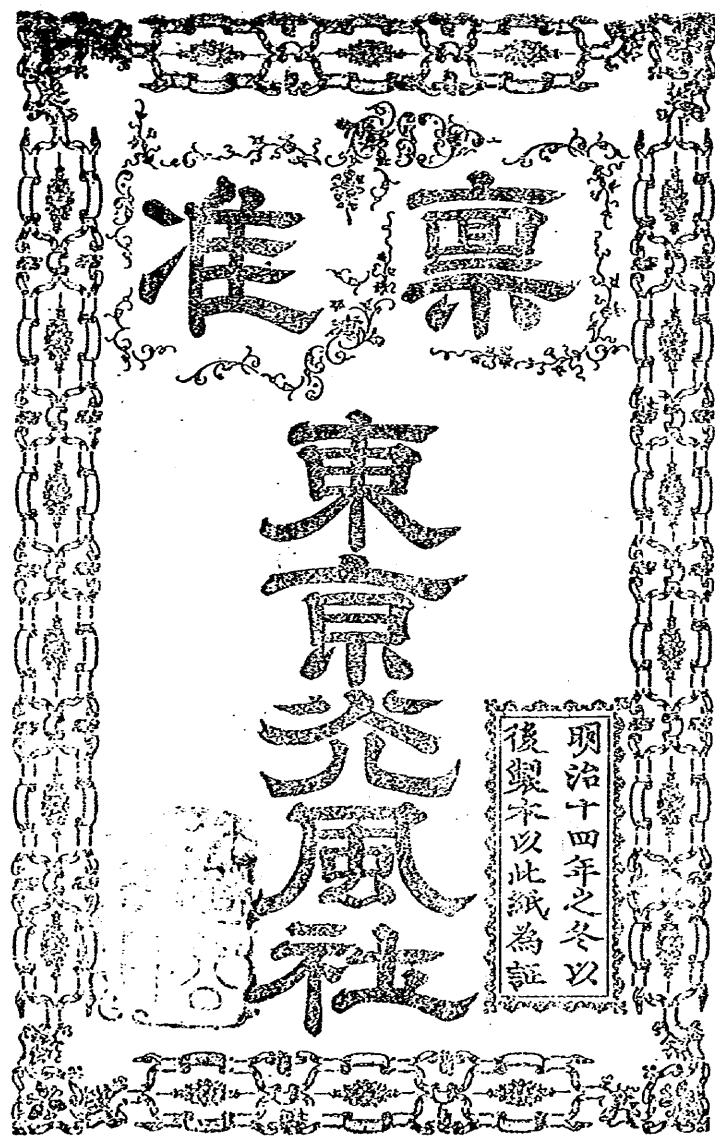 稟准
東京光風社
明治十四年之冬以
後製本以此紙為証